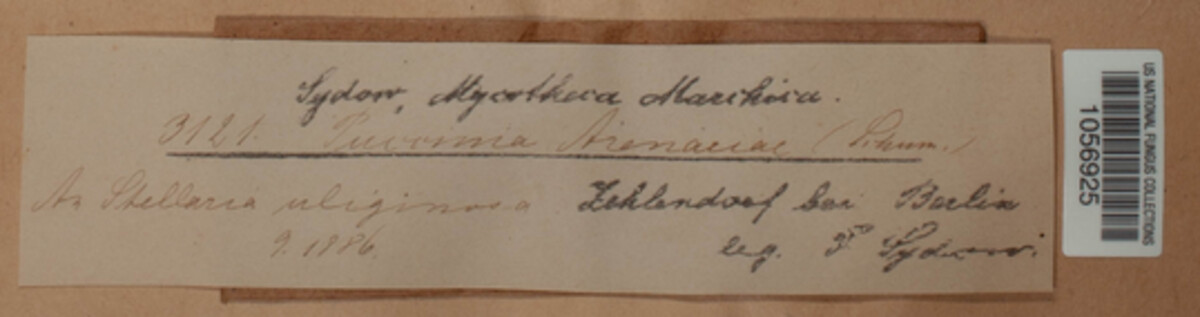 Sydow, Mycotheca Marchica.
3121. Puccinia Arenariae (Schum.)
An Stellaria uliginosa Zehlendorf bei Berlin
9. 1886. leg. P. Sydow.
US NATIONAL FUNGUS COLLECTIONS
1056925